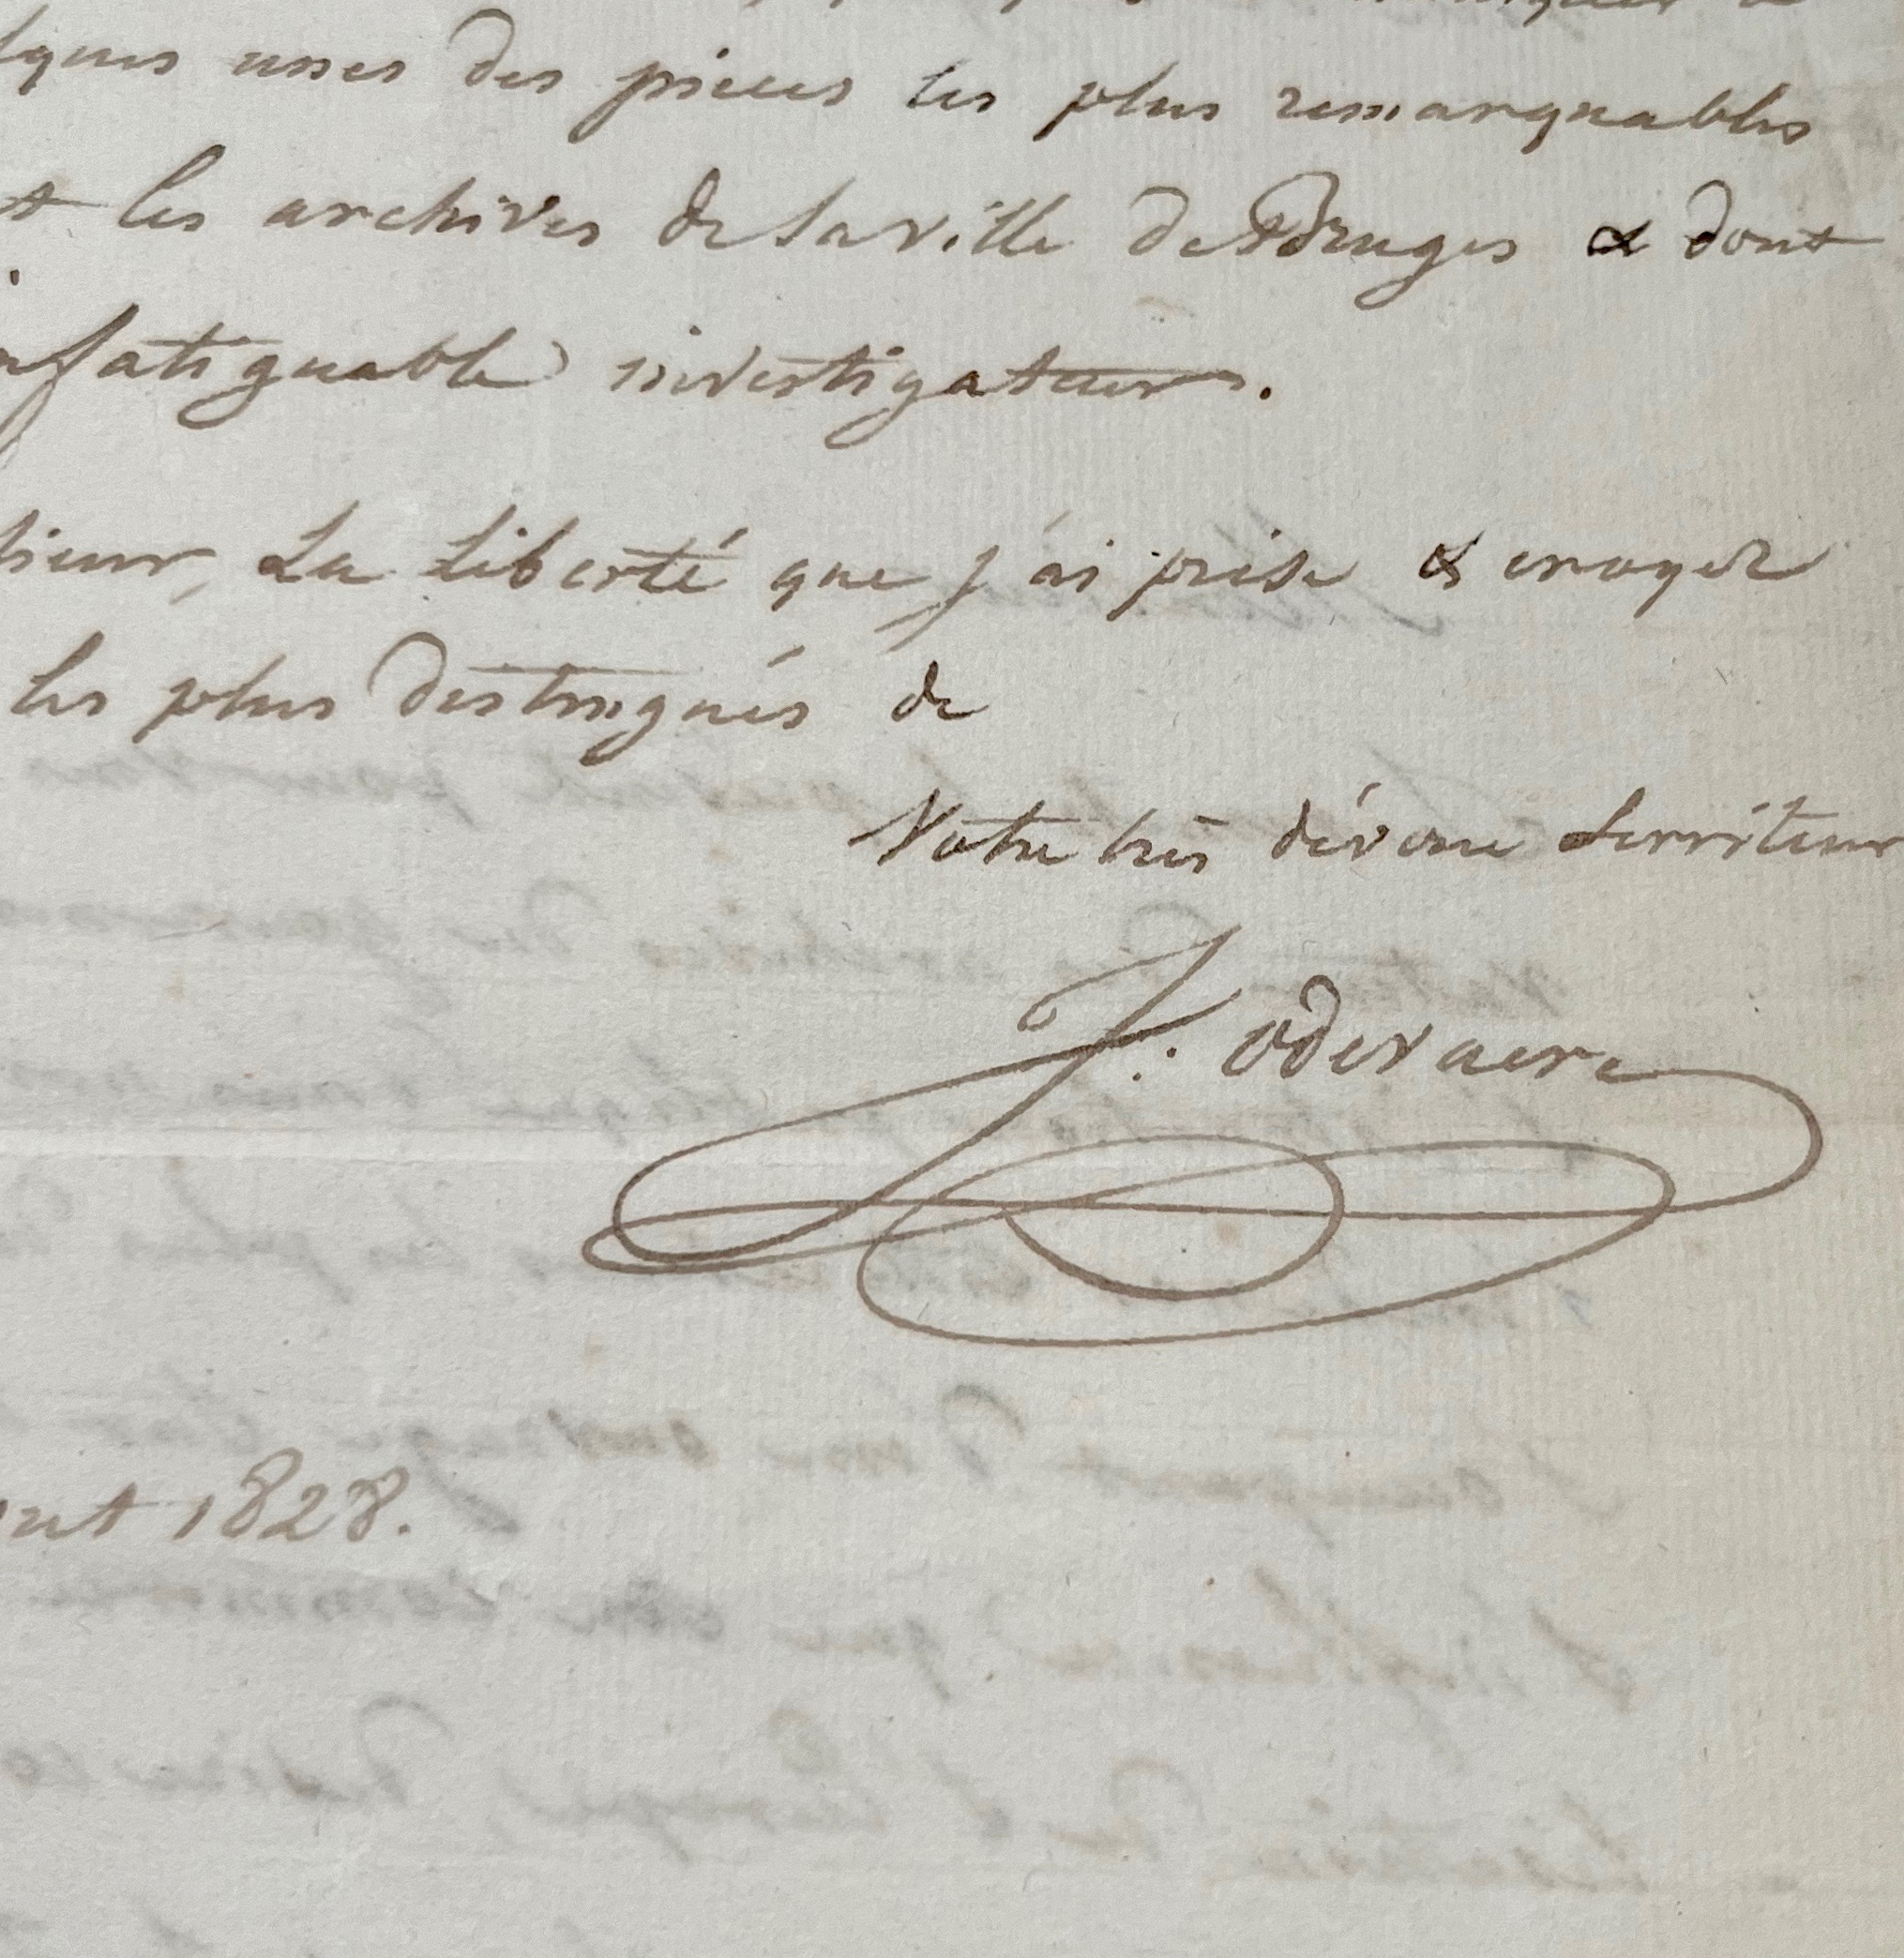 lques unes des pieces les plus remarquables
t les archives de la ville de Bruges & dont
nfatiguable investigateur.
sieur, La Liberté que j'ai prise & croyez
les plus destingués de
Votre très dévoué Serviteur
J. odevaere
out 1828.